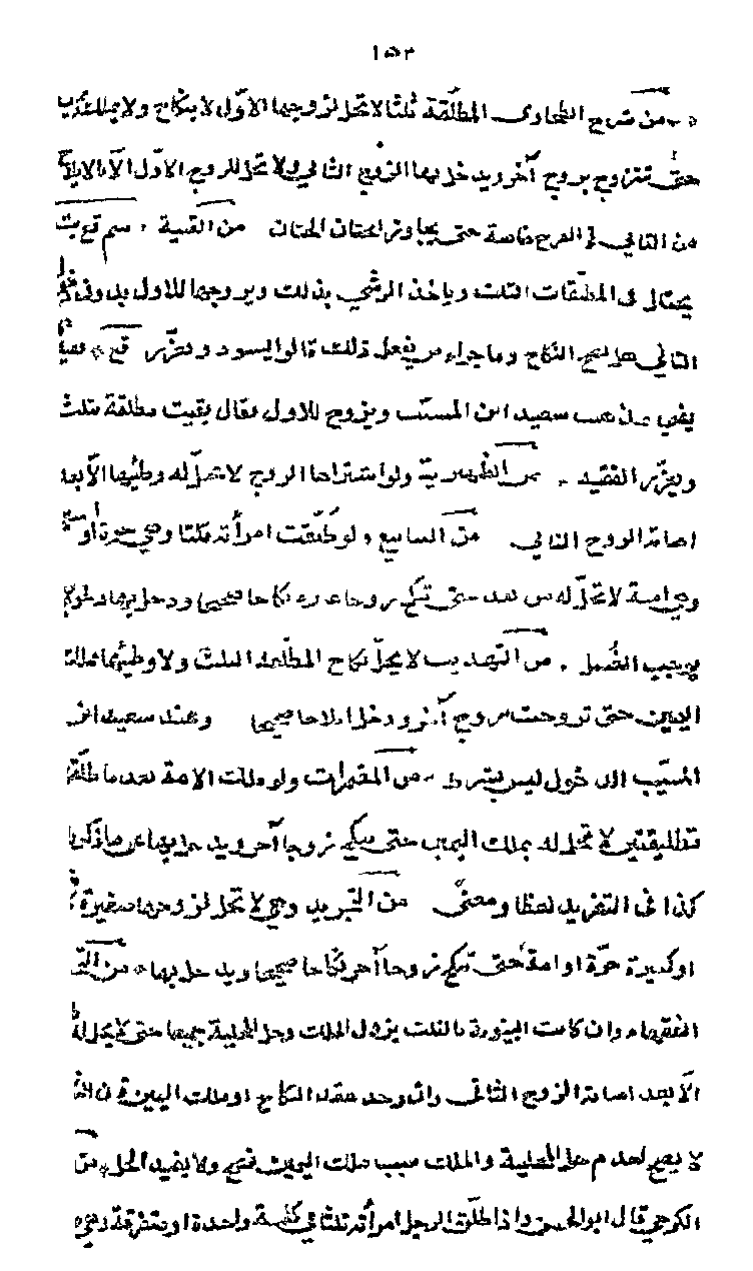 ١٥٣
من شرح الطحاوى المطلّقة ثلثا لا تحل لزوجها الاوّل لا بنكاح ولا بملك
حتى تتزوج بزوج آخر ويدخل بها الزوج الثانى ولا تحل للزوج الاوّل الّا
من الثانى فى الفرج خاصة حتى يجاوز الختان الختان من القنية
يحتال فى المطلّقات الثلث وياخذ الرشى بذلك ويزوجها للاول بدون
الثانى هل يصح النكاح وما جزاء من يفعل ذلك قالوا يسود ويعزّر
يفتى بمذهب سعيد ابن المسيّب ويزوج للاول فقال بقيت مطلقة بثلث
ويعزّر الفقيه من الظهيرية ولو اشتراها الزوج لا يحلّ له وطئها الّا بعد
اصابة الزوج الثانى من اليناببع ولو طلّقت امرأته ثلثا وهى حرة أو
وهى امة لا تحلّ له من بعد حتى تنكح زوجا غيره نكاحا صحيحا ودخل بها
يوجب الغسل من التهذيب لا يحلّ نكاح المطلقة الثلث ولا وطيها بملك
اليمين حتى تزوجت بزوج آخر ودخل نكاحا صحيحا وعند سعيد ابن
المسيّب الدخول ليس بشرط من المضمرات ولو ملك الامة بعد ما طلّقها
تطليقتين لا تحل له بملك اليمين حتى تنكح زوجا آخر ويدخل بها
كذا فى التفريد لفظا ومعنى من التجريد وهى لا تحل لزوجها صغيرة
او كبيرة حرّة او امة حتى تنكح زوجا آخر نكاحا صحيحا ويدخل بها
الفقهاء وان كانت البينونة بالثلث يزول الملك وحل المحلية جميعا حتى لا يحل له
الّا بعد اصابة الزوج الثانى وان وجد عقد النكاح او ملك اليمين
لا يصح لعدم حل المحلية والملك بسبب ملك اليمين ولا يفيد الحل من
الكرخى قال ابو الحسن واذا طلّق الرجل امرأته ثلثا فى كلمة واحدة او متفرقة